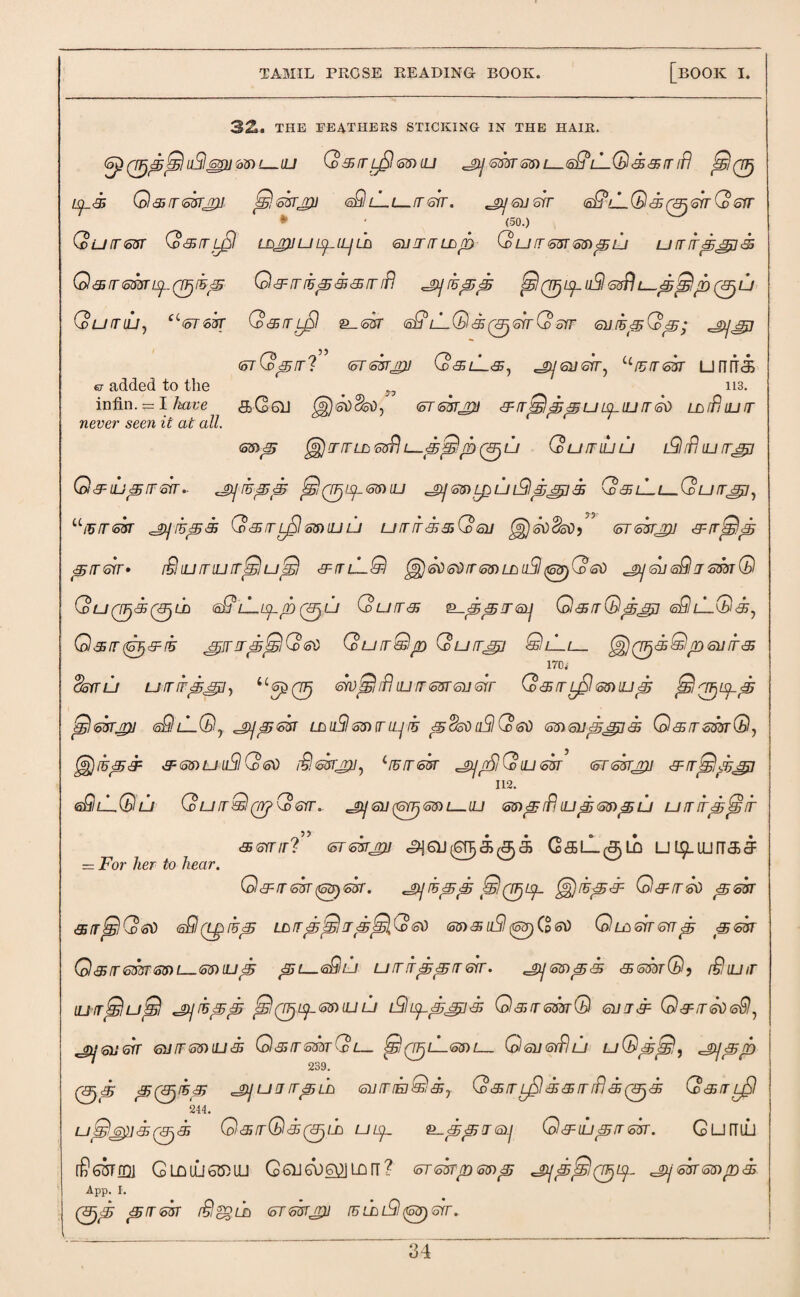 TAMIL PRCSE READING BOOK. [BOOK I.
32. THE FEATHERS STICKING IN THE HAIR.
ஒருத்தியினுடைய கோழியை அண்டைவீட்டுக்காரி திரு
டிக் கொன்று தின்று விட்டாள். அவள் வீட்டுக்குள்ளே
(50.)
போன கோழி மறுபடியும் வாராமற் போனதைப் பார்த்துக்
கொண்டிருந்த சொந்தக்காரி அந்தத் திருடியினிடத்திற்குப்
போய், “என் கோழி உன் வீட்டுக்குள்ளே வந்ததே; அது
எதோ?” என்று கேட்க, அவள், “நான் பார்க்
௭ added to the 113.
infin. = I have கவே இல்லை,” என்று சாதித்தபடியால் மரியா
never seen it at all.
தை இராமனிடத்திற்குப் போய்ப் பிரியாது
செய்தாள். அந்தத் திருடியை அழைப்பித்துக் கேட்டபோது,
“நான் அந்தக் கோழியைப் பார்க்கவே இல்லை,” என்று சாதித்
தாள். நியாயாதிபதி சாட்சி இல்லாமையினாலே அவவிரண்டு
பேருக்கும் வீட்டிற்குப் போக உத்தரவு கொடுத்து விட்டு,
கொஞ்சந் தூரத்திலே போகிற போது கிட்ட இருக்கிறவர்க
170.
ளைப் பார்த்து, “ஒரு ஸ்திரியானவள் கோழியைத் திருடித்
தின்று விட்டு, அதன் மயிரையுந் தலையிலே வைத்துக் கொண்டு,
இந்தச் சபையிலே நின்று, ‘நான் அறியேன்’ என்று சாதித்து
112.
விட்டுப் போகிறாளே. அவளுடைய தைரியத்தைப் பார்த்தீர்
களா?” என்று அவளுக்குக் கேட்கும் படியாகச்
= For her to hear.
சொன்னான். அந்தத் திருடி இந்தச் சொல் தன்
காதிலே விழுந்த மாத்திரத்திலே கையினாலே மெள்ளத் தன்
கொண்டையைத் தடவிப் பார்த்தாள். அதைக் கண்டு, நியா
யாதிபதி அந்தத் திருடியைப் பிடித்துக் கொண்டு வரச் சொல்லி,
அவள் வாயைக் கொண்டே திருட்டை வெளிப் படுத்தி, அதற்
239.
குத் தகுந்த அபராதம் வாங்கி, கோழிக்காரிக்குக் கோழி
244.
பதிலுக்குக் கொடுக்கும் படி உத்தரவு செய்தான். பொய்
நின்று மெய்யை வெல்லுமா? என்றதை அத்திருடி அன்றைக்
App. I.
குத் தான் நிஜம் என்று நம்பினாள்.
34